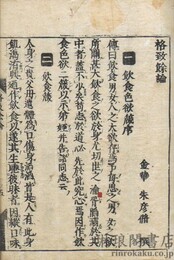 格致餘論
金華 朱彥脩 撰
一 飲食色欲箴序
傳曰飲食男女人之大欲存焉予每思之男女之欲
所關甚大飲食之欲於身尤切世之淪胥陷溺於其
中者蓋不少矣苟志於道必先於此究心焉因作飲
食色欲二箴以示弟姪并告諸同志云
二 飲食箴
人身之貴父母遺體為口傷身滔滔皆是人有此身
飢渴洊興迺作飲食以遂其生睠彼昧者因縱口味
www.rinrokaku.com